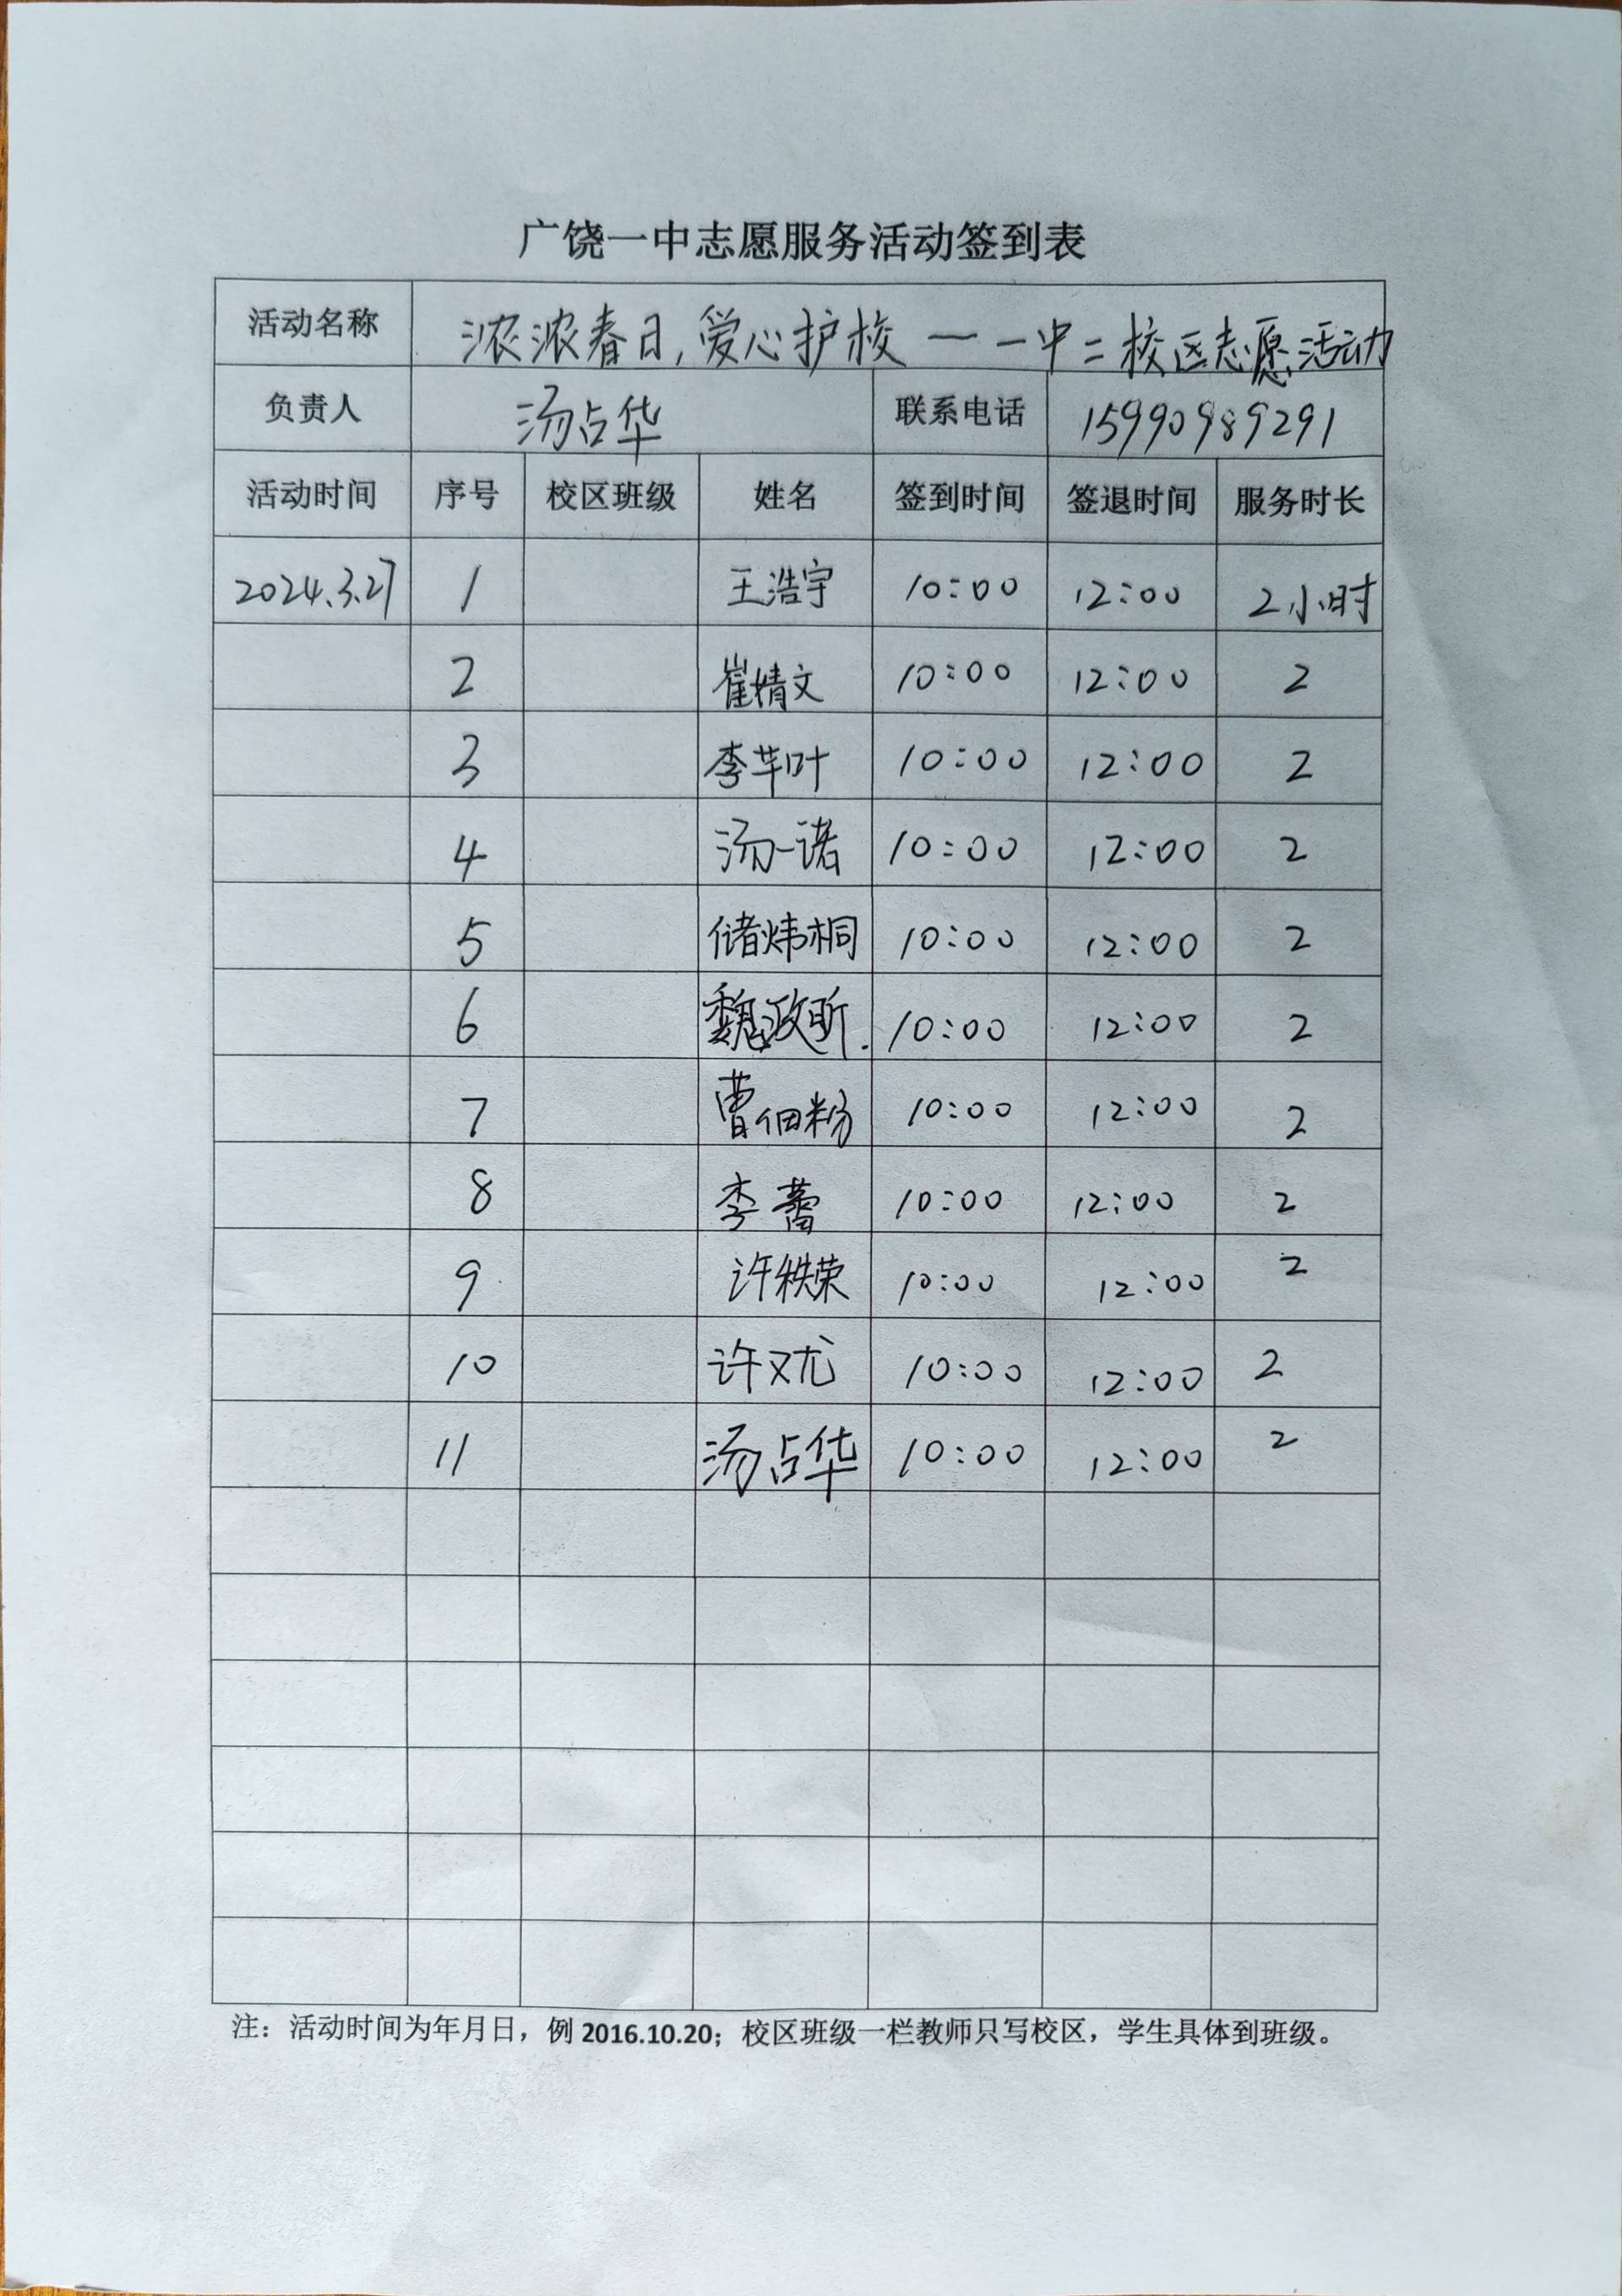 广饶一中志愿服务活动签到表
活动名称 浓浓春日,爱心护校 — 一中二校区志愿活动
负责人 汤占华 联系电话 15990989291
活动时间 序号 校区班级 姓名 签到时间 签退时间 服务时长
2024.3.27 1 王浩宇 10:00 12:00 2小时
2 崔婧文 10:00 12:00 2
3 李芊叶 10:00 12:00 2
4 汤一诺 10:00 12:00 2
5 储炜桐 10:00 12:00 2
6 魏政昕 10:00 12:00 2
7 曹佃粉 10:00 12:00 2
8 李蕾 10:00 12:00 2
9 许秩荣 10:00 12:00 2
10 许又尤 10:00 12:00 2
11 汤占华 10:00 12:00 2
注：活动时间为年月日，例 2016.10.20；校区班级一栏教师只写校区，学生具体到班级。